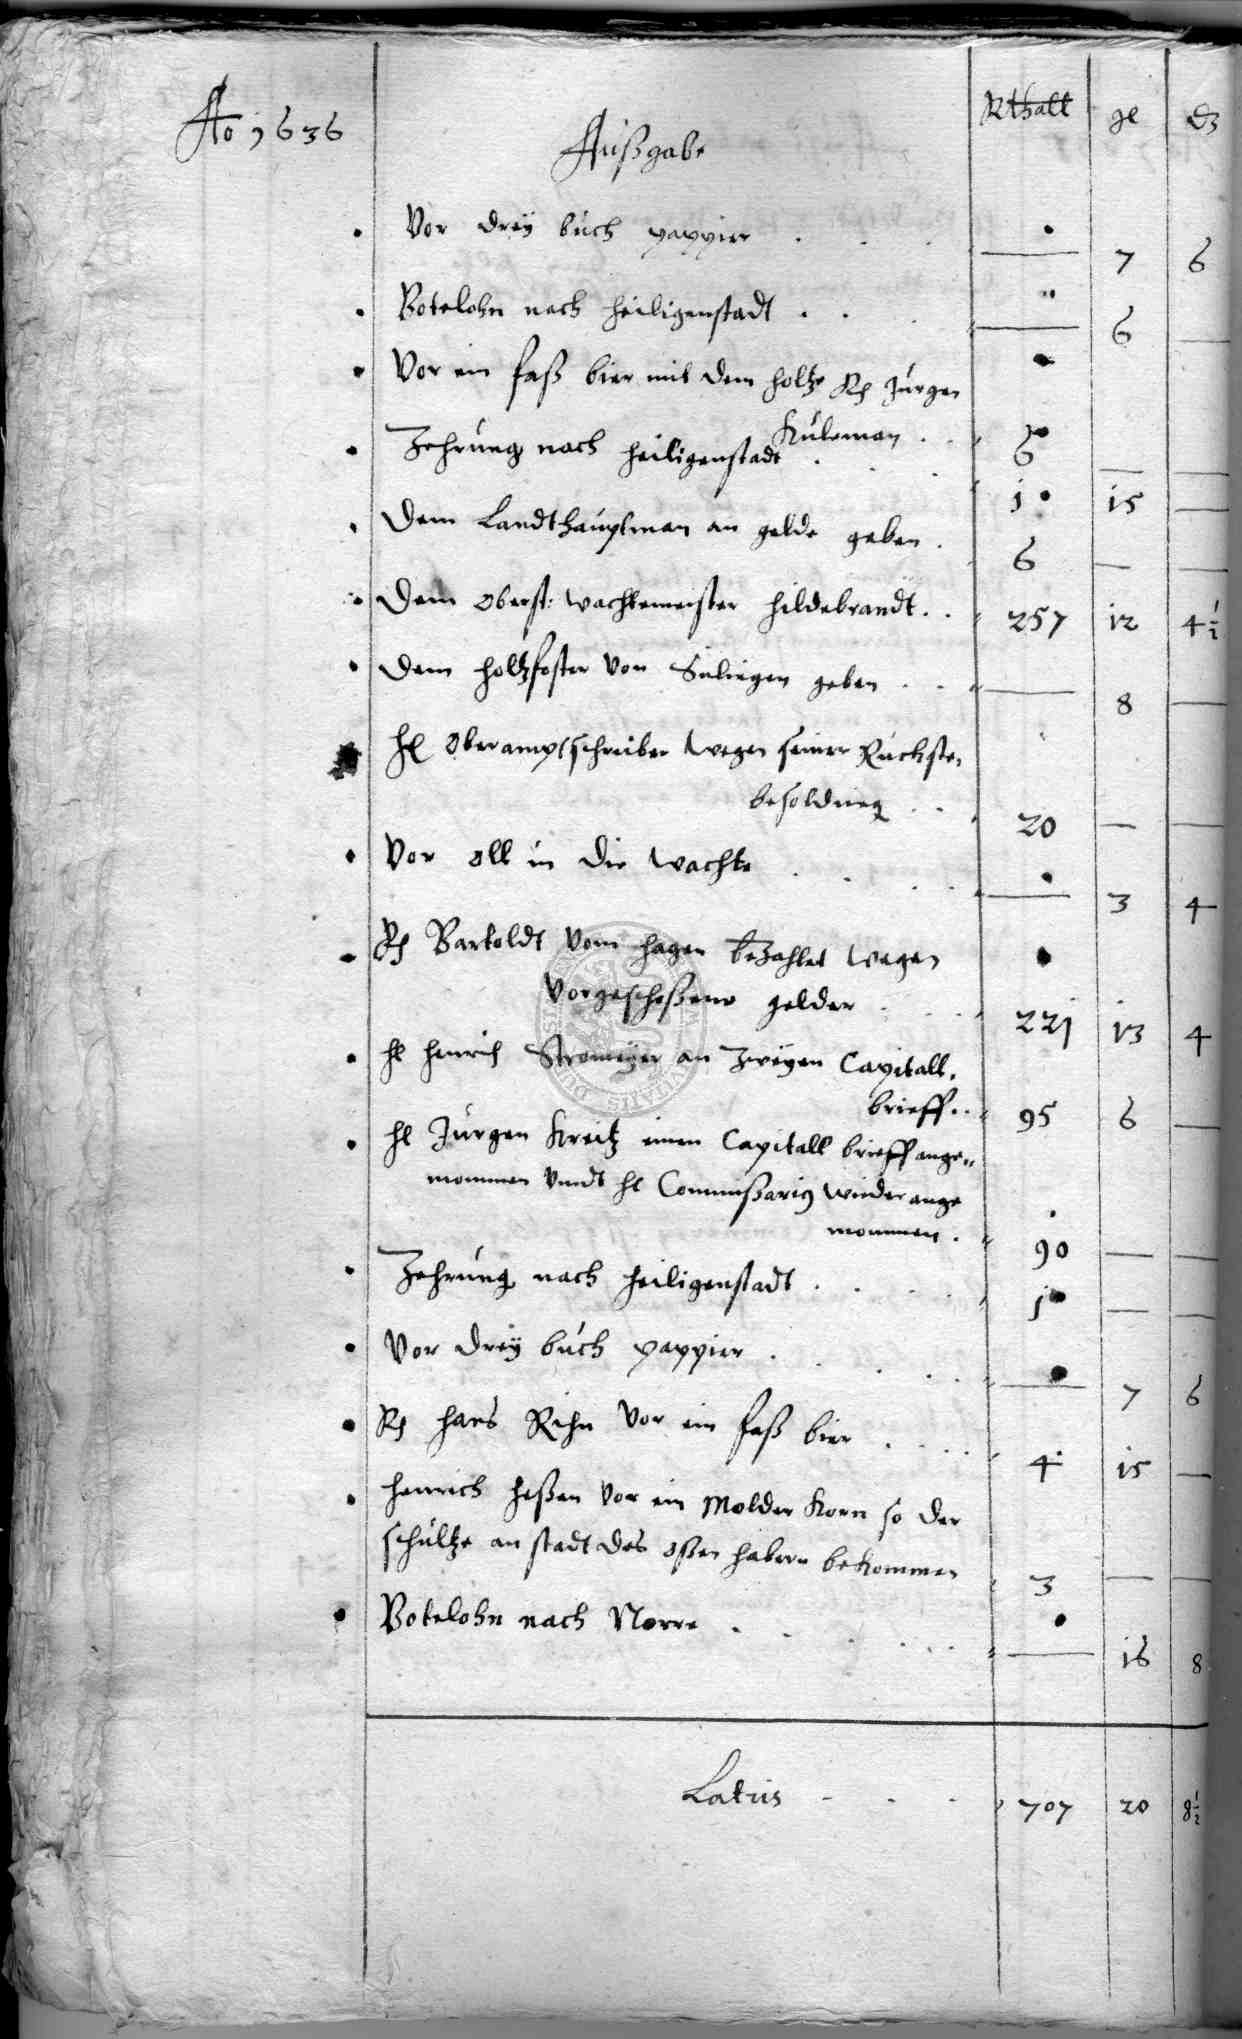 Ao 1636
Außgabe
Rthall gl d
Vor dreÿ buch pappier . . . — 7 6
Botelohn nach Heiligenstadt . . . — 6 —
Vor ein faß bier mit dem holtze Jurgen
Kuleman . . 6 — —
Zehrung nach Heiligenstadt . . . 1 15 —
Dem Landthauptman an gelde geben . 6 — —
Dem Oberst: Wachtemeister Hildebrandt . . 257 12 4½
Dem holtzfoster von geben . . — 8 —
H Oberamptschreiber wegen seiner Rucksten
besoldung . . 20 — —
Vor oll in die Wachte . . . . — 3 4
Bartoldt Vom Hagen bezahlet wegen
Vorgeschoßene gelder . . . 221 13 4
H Henrich Stromeÿer an Zweÿen Capitall
brieff . . 95 6 —
H Jurgen Kreitz einen Capitall brieff ange=
nommen Vundt H Commißarius wieder ange
nommen . 90 — —
Zehrung nach Heiligenstadt . . . . 1 — —
Vor dreÿ buch pappier . . . . . — 7 6
Hans Rihn Vor ein faß bier . . . . 4 15 —
Henrich Heßen Vor ein Molder Korn so der
schultze an stadt des habern bekommen 3 — —
Botelohn nach Norre . . . . . — 16 8
Latus - . . 707 20 8½